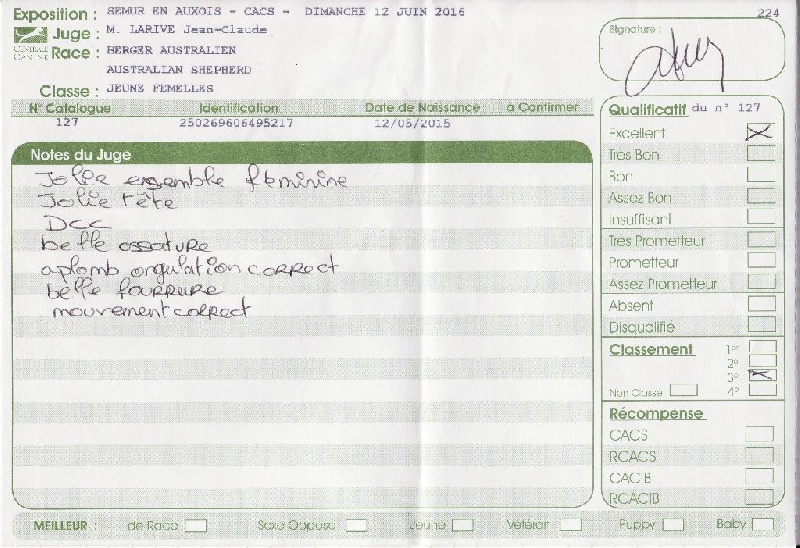 Exposition : SEMUR EN AUXOIS - CACS - DIMANCHE 12 JUIN 2016
224
CENTRALE CANINE
Juge : M. LARIVE Jean-Claude
Race : BERGER AUSTRALIEN
AUSTRALIAN SHEPHERD
Classe : JEUNE FEMELLES
Signature :
N° Catalogue Identification Date de Naissance à Confirmer
127 250269606495217 12/05/2015
Notes du Juge
Jolie ensemble féminine
Jolie tête
DCC
belle ossature
aplomb angulation correct
belle fourrure
mouvement correct
Qualificatif du n° 127
Excellent
Très Bon
Bon
Assez Bon
Insuffisant
Très Prometteur
Prometteur
Assez Prometteur
Absent
Disqualifié
Classement 1er
2e
3e
Non Classé 4e
Récompense
CACS
RCACS
CACIB
RCACIB
MEILLEUR : de Race Sexe Opposé Jeune Vétéran Puppy Baby